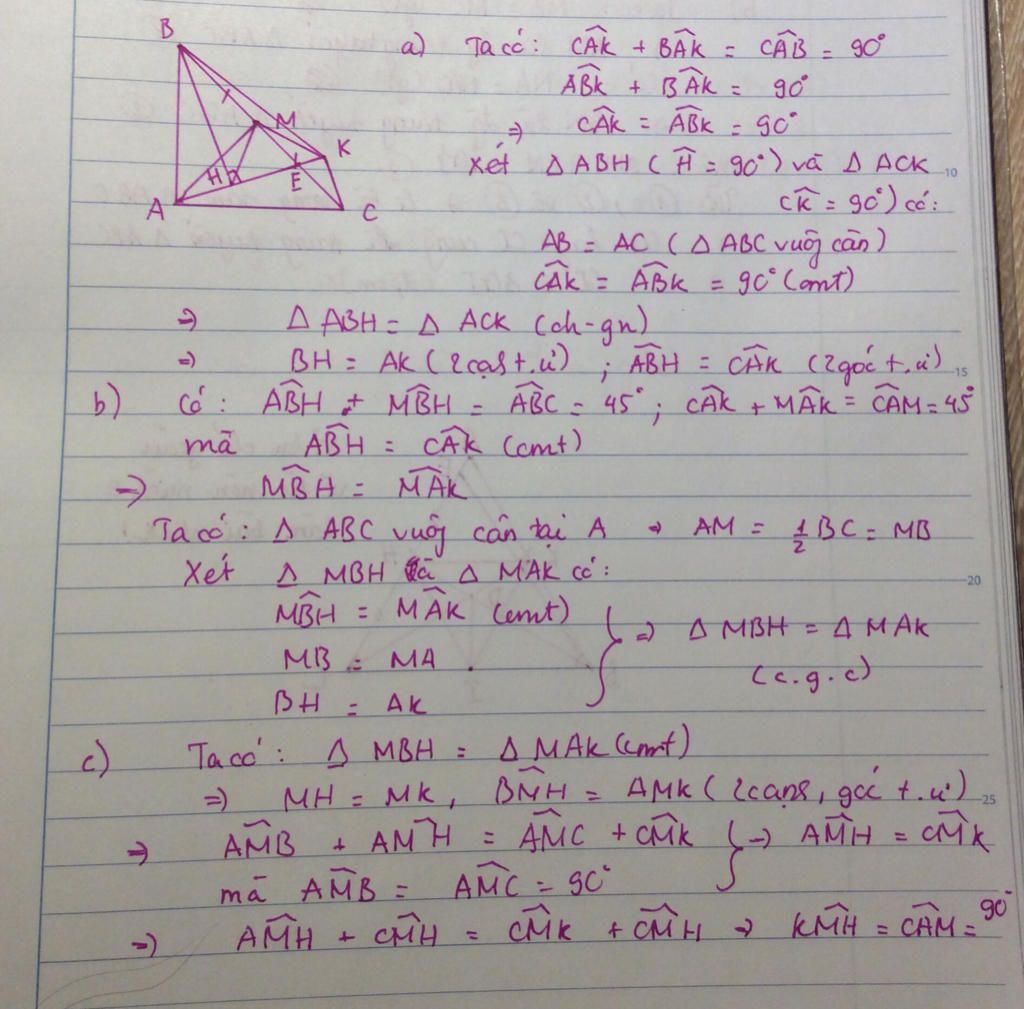 B
M
K
H
E
A
C
a) Ta có: CÂK + BÂK = CÂB = 90°
AB̂K + BÂK = 90°
⇒ CÂK = AB̂K = 90°
Xét Δ ABH (Ĥ = 90°) và Δ ACK
CK̂ = 90°) có:
AB = AC (Δ ABC vuông cân)
CÂK = AB̂K = 90° (cmt)
⇒ Δ ABH = Δ ACK (ch-gn)
⇒ BH = AK (2 cạnh t.ư) ; AB̂H = CÂK (2 góc t.ư)
b) Có: AB̂H + MB̂H = AB̂C = 45° ; CÂK + MÂK = CÂM = 45°
mà AB̂H = CÂK (cmt)
⇒ MB̂H = MÂK
Ta có: Δ ABC vuông cân tại A → AM = 1/2 BC = MB
Xét Δ MBH và Δ MAK có:
MB̂H = MÂK (cmt)
MB = MA
BH = AK
} ⇒ Δ MBH = Δ MAK
(c.g.c)
c) Ta có: Δ MBH = Δ MAK (cmt)
⇒ MH = MK, BM̂H = AMK (2 cạnh, góc t.ư)
⇒ AM̂B + AM̂H = AM̂C + CM̂K } → AM̂H = CM̂K
mà AM̂B = AM̂C = 90°
⇒ AM̂H + CM̂H = CM̂K + CM̂H → KM̂H = CÂM = 90°
10
15
20
25